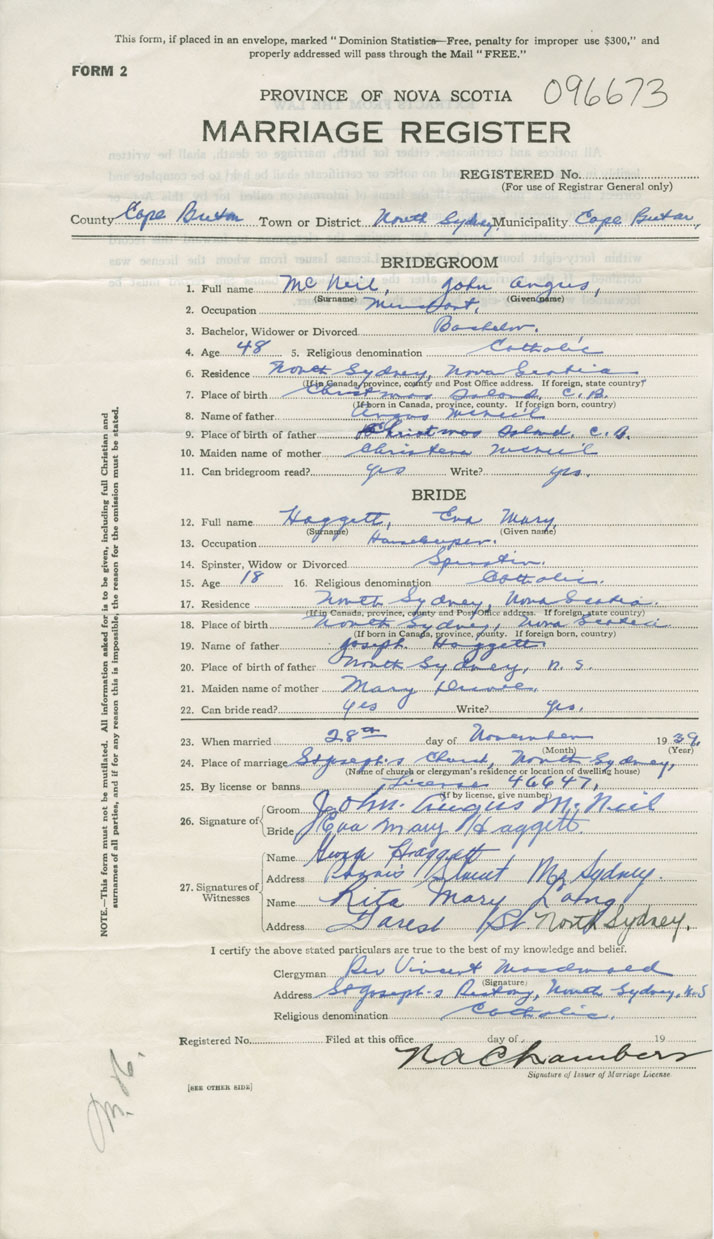 This form, if placed in an envelope, marked "Dominion Statistics—Free, penalty for improper use $300," and
properly addressed will pass through the Mail "FREE."
FORM 2
PROVINCE OF NOVA SCOTIA 096673
MARRIAGE REGISTER
REGISTERED No.
(For use of Registrar General only)
County Cape Breton Town or District North Sydney Municipality Cape Breton,
BRIDEGROOM
1. Full name McNeil, John Angus,
(Surname) (Given name)
2. Occupation
3. Bachelor, Widower or Divorced Bachelor.
4. Age 48 5. Religious denomination Catholic
6. Residence North Sydney, Nova Scotia
(If in Canada, province, county and Post Office address. If foreign, state country)
7. Place of birth Christmas Island, C. B.
(If born in Canada, province, county. If foreign born, country)
8. Name of father Angus McNeil
9. Place of birth of father Christmas Island, C. B.
10. Maiden name of mother Christena McNeil
11. Can bridegroom read? yes Write? yes.
BRIDE
12. Full name Haggett, Eva Mary,
(Surname) (Given name)
13. Occupation Housekeeper.
14. Spinster, Widow or Divorced Spinster.
15. Age 18 16. Religious denomination Catholic.
17. Residence North Sydney, Nova Scotia.
(If in Canada, province, county and Post Office address. If foreign, state country)
18. Place of birth North Sydney, Nova Scotia
(If born in Canada, province, county. If foreign born, country)
19. Name of father Joseph Haggett
20. Place of birth of father North Sydney, N. S.
21. Maiden name of mother Mary
22. Can bride read? yes Write? yes.
23. When married 28th day of November 1939.
(Month) (Year)
24. Place of marriage St Joseph's Church, North Sydney,
(Name of church or clergyman's residence or location of dwelling house)
25. By license or banns License 46647,
(If by license, give number)
26. Signature of Groom John Angus McNeil
Bride Eva Mary Haggett
27. Signatures of Witnesses
Name Haggett
Address Street Sydney.
Name Rita Mary
Address St. North Sydney.
I certify the above stated particulars are true to the best of my knowledge and belief.
Clergyman Rev Vincent Macdonald
(Signature)
Address St Joseph's Rectory, North Sydney, N.S
Religious denomination Catholic.
Registered No. Filed at this office day of 19
N A Chambers
Signature of Issuer of Marriage License
[SEE OTHER SIDE]
NOTE.—This form must not be mutilated. All information asked for is to be given, including full Christian and
surnames of all parties, and if for any reason this is impossible, the reason for the omission must be stated.